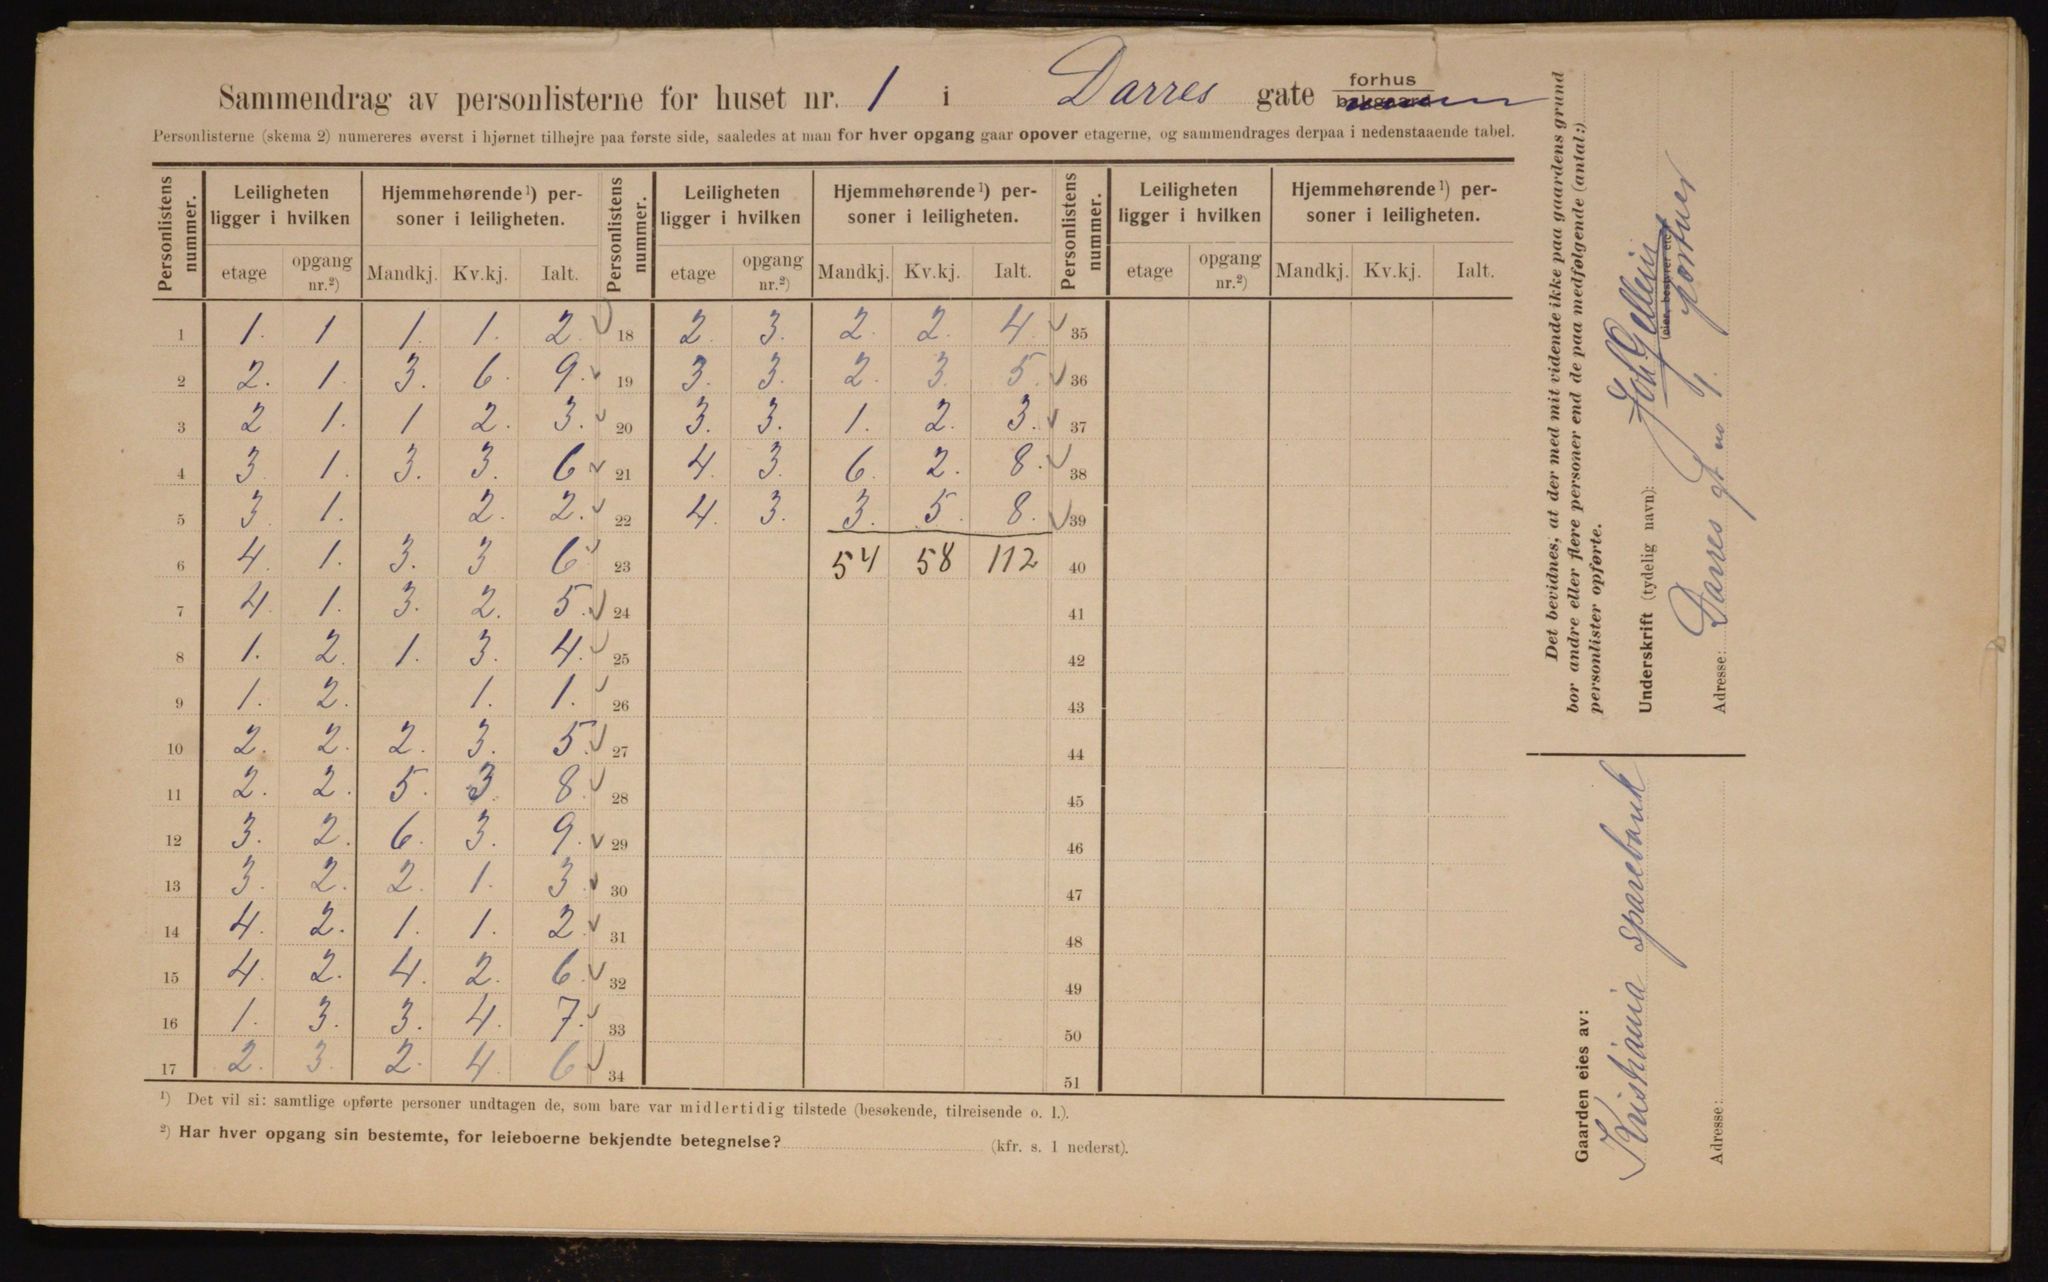 Sammendrag av personlisterne for huset nr. 1 i Darres gate forhus bakgaard
Personlisterne (skema 2) numereres øverst i hjørnet tilhøjre paa første side, saaledes at man for hver opgang gaar opover etagerne, og sammendrages derpaa i nedenstaaende tabel.
Personlistens nummer. Leiligheten ligger i hvilken Hjemmehørende¹) personer i leiligheten. Personlistens nummer. Leiligheten ligger i hvilken Hjemmehørende¹) personer i leiligheten. Personlistens nummer. Leiligheten ligger i hvilken Hjemmehørende¹) personer i leiligheten.
etage opgang nr.²) Mandkj. Kv.kj. Ialt. etage opgang nr.²) Mandkj. Kv.kj. Ialt. etage opgang nr.²) Mandkj. Kv.kj. Ialt.
1 1. 1 1. 1. 2. 18 2. 3. 2. 2. 4 35
2 2. 1. 3. 6. 9. 19 3. 3. 2. 3. 5. 36
3 2 1. 1 2. 3. 20 3. 3. 1. 2. 3. 37
4 3 1. 3. 3. 6 21 4. 3. 6. 2. 8. 38
5 3 1. 2. 2. 22 4. 3. 3. 5. 8. 39
6 4. 1. 3. 3 6 23 54 58 112 40
7 4. 1. 3. 2. 5. 24 41
8 1. 2. 1. 3. 4. 25 42
9 1. 2. 1. 1. 26 43
10 2. 2. 2. 3. 5. 27 44
11 2. 2. 5. 3 8. 28 45
12 3. 2. 6. 3. 9. 29 46
13 3. 2. 2. 1. 3. 30 47
14 4. 2. 1. 1. 2. 31 48
15 4. 2. 4. 2. 6. 32 49
16 1. 3. 3. 4. 7. 33 50
17 2. 3. 2. 4. 6 34 51
¹) Det vil si: samtlige opførte personer undtagen de, som bare var midlertidig tilstede (besøkende, tilreisende o. l.).
²) Har hver opgang sin bestemte, for leieboerne bekjendte betegnelse? (kfr. s. 1 nederst).
Det bevidnes, at der med mit vidende ikke paa gaardens grund
bor andre eller flere personer end de paa medfølgende (antal:)
personlister opførte.
Underskrift (tydelig navn): Joh Gellein
(eier, bestyrer eller
portner
Adresse: Darres gt no 1.
Gaarden eies av:
Kristiania sparebank
Adresse: